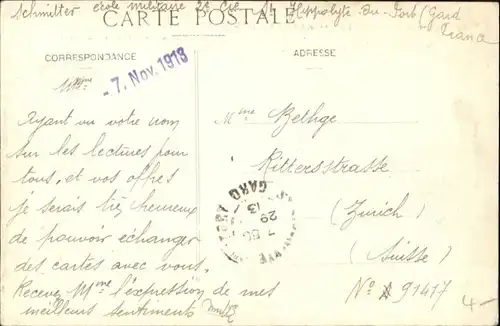 Schmitter école militaire 2e Cie St Hippolyte du Fort (Gard
France
CARTE POSTALE
CORRESPONDANCE
Mme
- 7. Nov. 1913
Ayant vu votre nom
sur les lectures pour
tous, et vos offres
je serais très heureux
de pouvoir échanger
des cartes avec vous.
Recevez Mme l'expression de mes
meilleurs sentiments
ADRESSE
Mme Bethge
Rittersstrasse
(Zurich)
(Suisse)
No 91417
GARD
29
13
4-